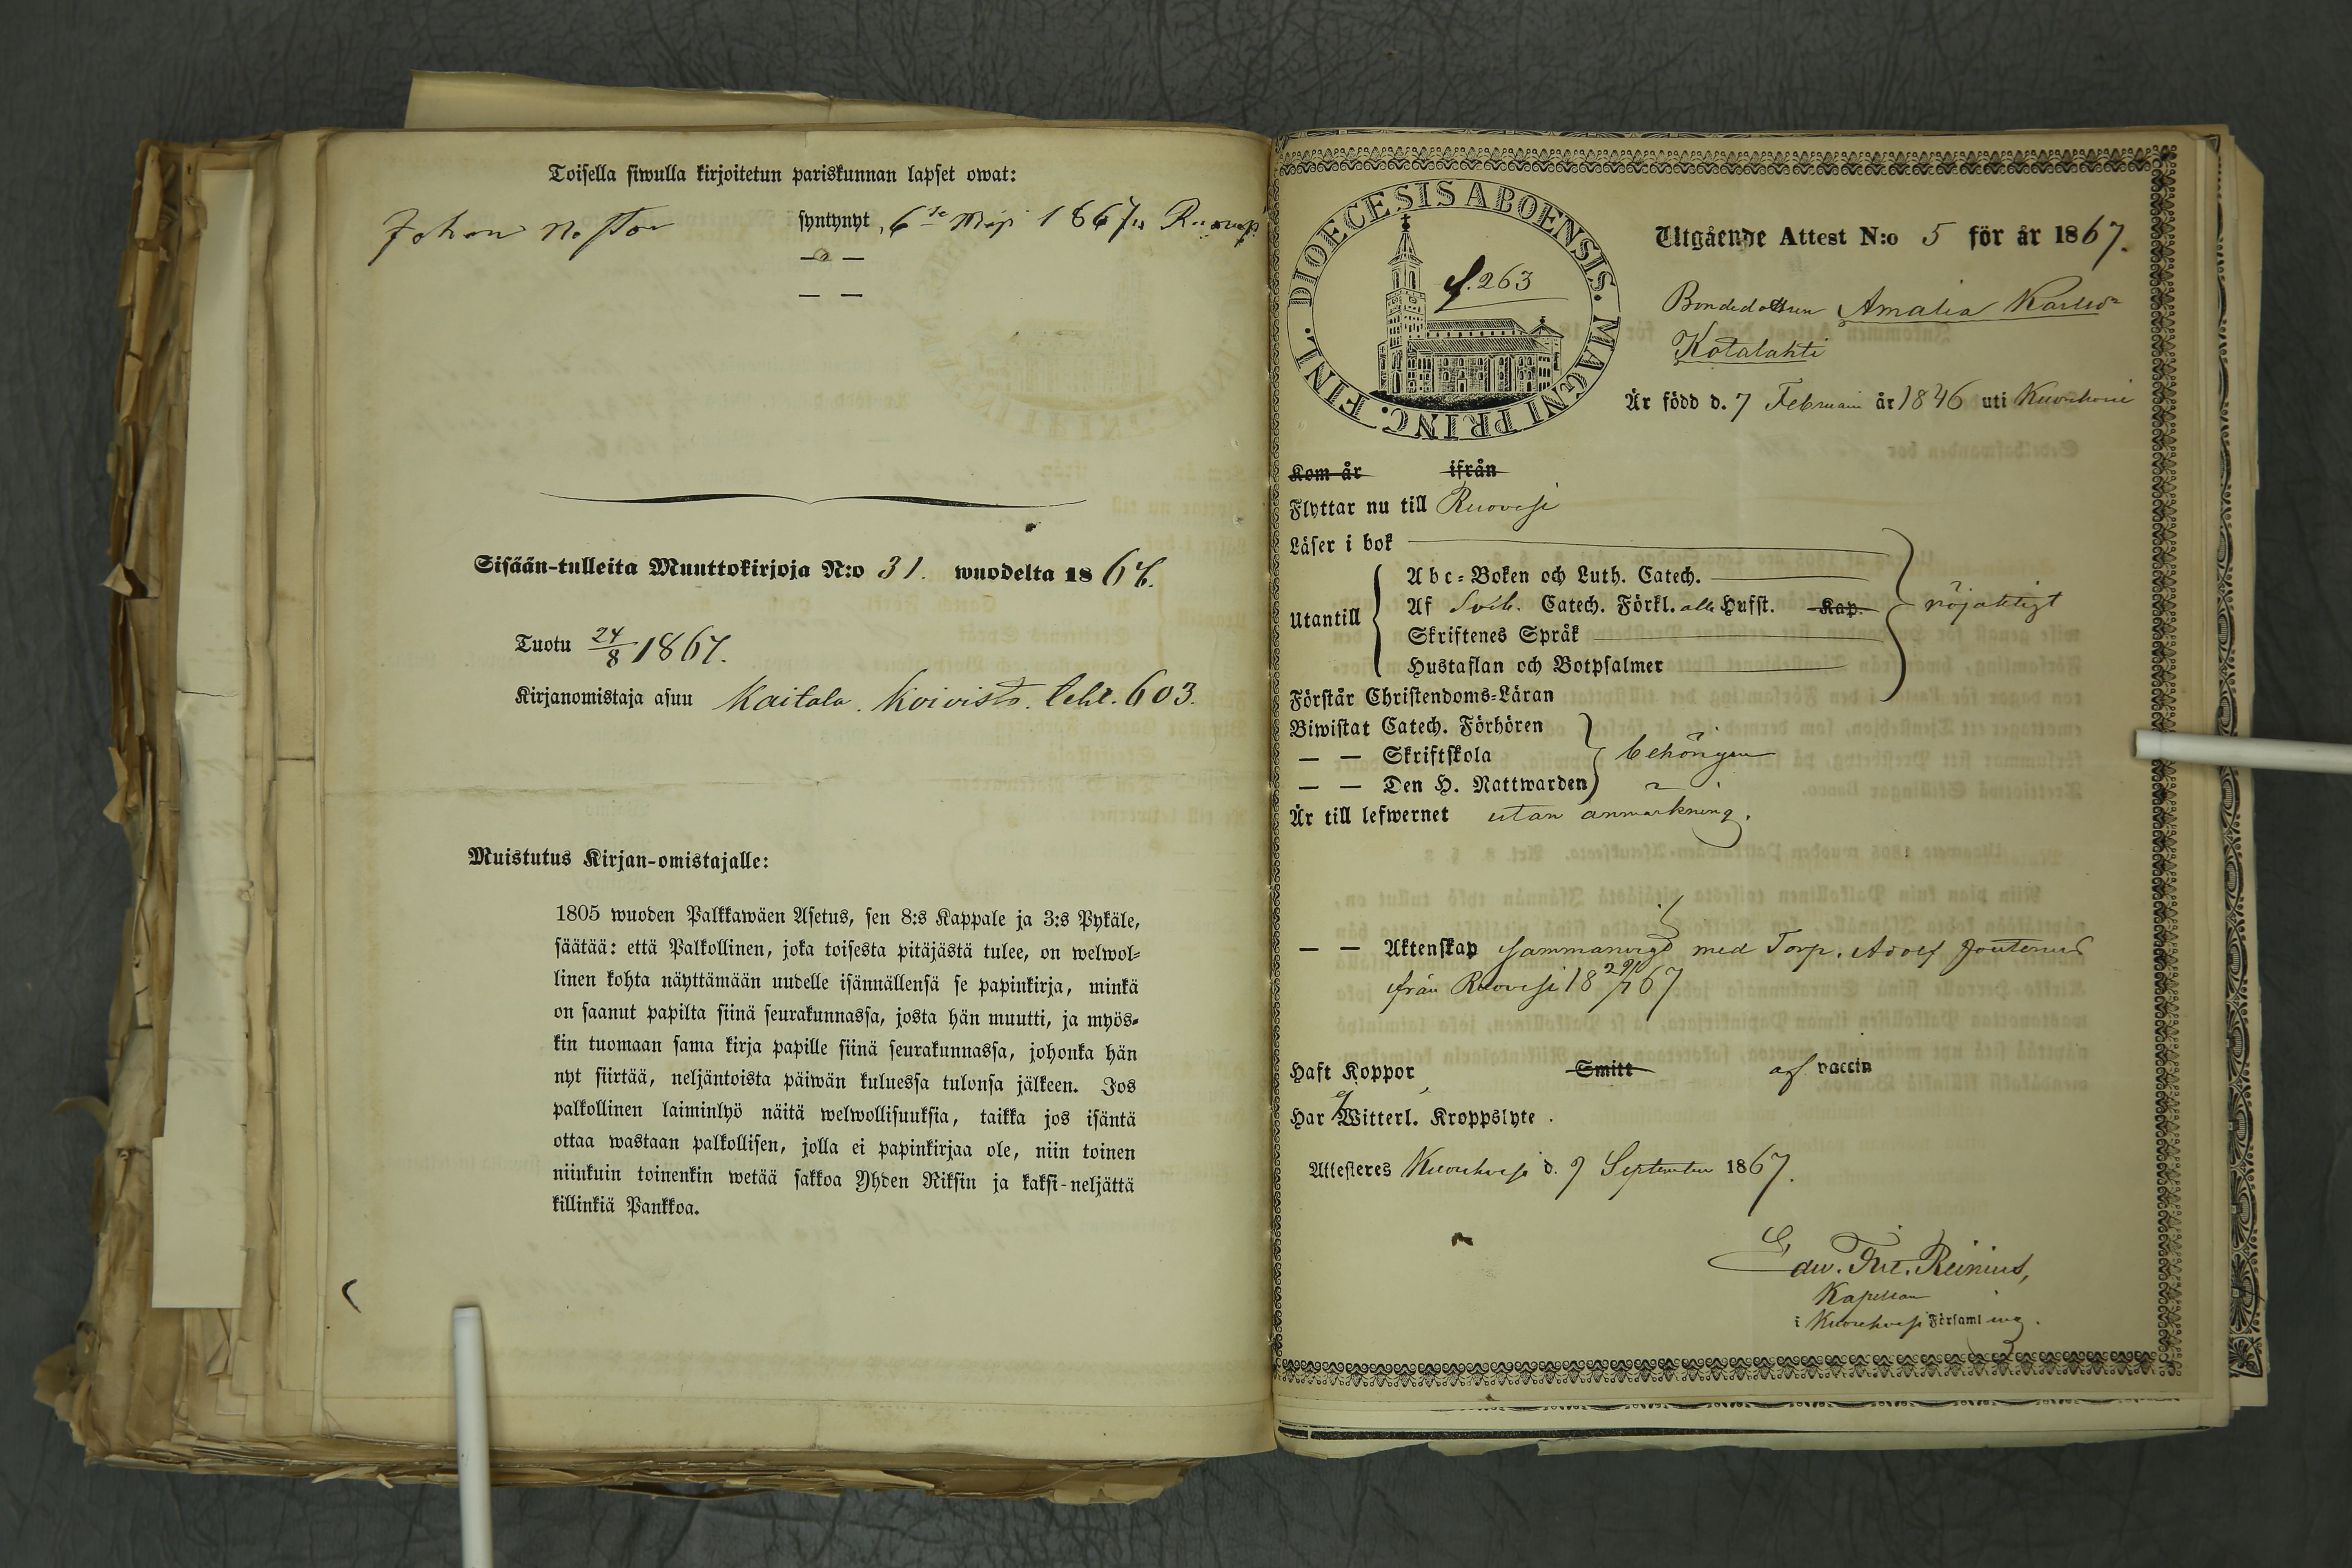 Toisella siwulla kirjoitetun pariskunnan lapset owat:
Johan Nestor syntynyt, 6 Maji 1867
— —
— —
Sisään-tulleita Muuttokirjoja N:o 31. wuodelta 1867.
Tuotu 24/8 1867.
Kirjanomistaja asuu Kaitala. Koivisto. lehl. 603.
Muistutus Kirjan-omistajalle:
1805 wuoden Palkkawäen Asetus, sen 8:s Kappale ja 3:s Pykäle,
säätää: että Palkollinen, joka toisesta pitäjästä tulee, on welwol-
linen kohta näyttämään uudelle isännällensä se papinkirja, minkä
on saanut papilta siinä seurakunnassa, josta hän muutti, ja myös-
kin tuomaan sama kirja papille siinä seurakunnassa, johonka hän
nyt siirtää, neljäntoista päiwän kuluessa tulonsa jälkeen. Jos
palkollinen laiminlyö näitä welwollisuuksia, taikka jos isäntä
ottaa wastaan palkollisen, jolla ei papinkirjaa ole, niin toinen
niinkuin toinenkin wetää sakkoa Yhden Riksin ja kaksi-neljättä
killinkiä Pankkoa.
DIOECESIS ABOENSIS. MAGNI PRINC. FINL.
f. 263
Utgående Attest N:o 5 för år 1867.
Bondedottren Amalia Karlsdr
Kotalahti
Är född d. 7 Februari år 1846 uti Kuorehvesi
Kom år ifrån
Flyttar nu till Ruovesi
Läser i bok
Utantill
Abc-Boken och Luth. Catech.
Af Sveb. Catech. Förkl. alla Hufst. Kap.
Skriftenes Språk
Hustaflan och Botpsalmer
nöjaktigt
Förstår Christendoms-Läran
Biwistat Catech. Förhören
— — Skriftskola
— — Den H. Nattwarden
behörigen
Är till lefwernet utan anmärkning.
— — Äktenskap sammanvigd med Torp. Adolf Joutenus
från Ruovesi 18 29/7 67
Haft Koppor, Smitt af vaccin
Har ej Witterl. Kroppslyte.
Attesteres Kuorehvesi d. 9 September 1867.
Edw. Fre. Reinius,
Kapellan
i Kuorehvesi Församling.